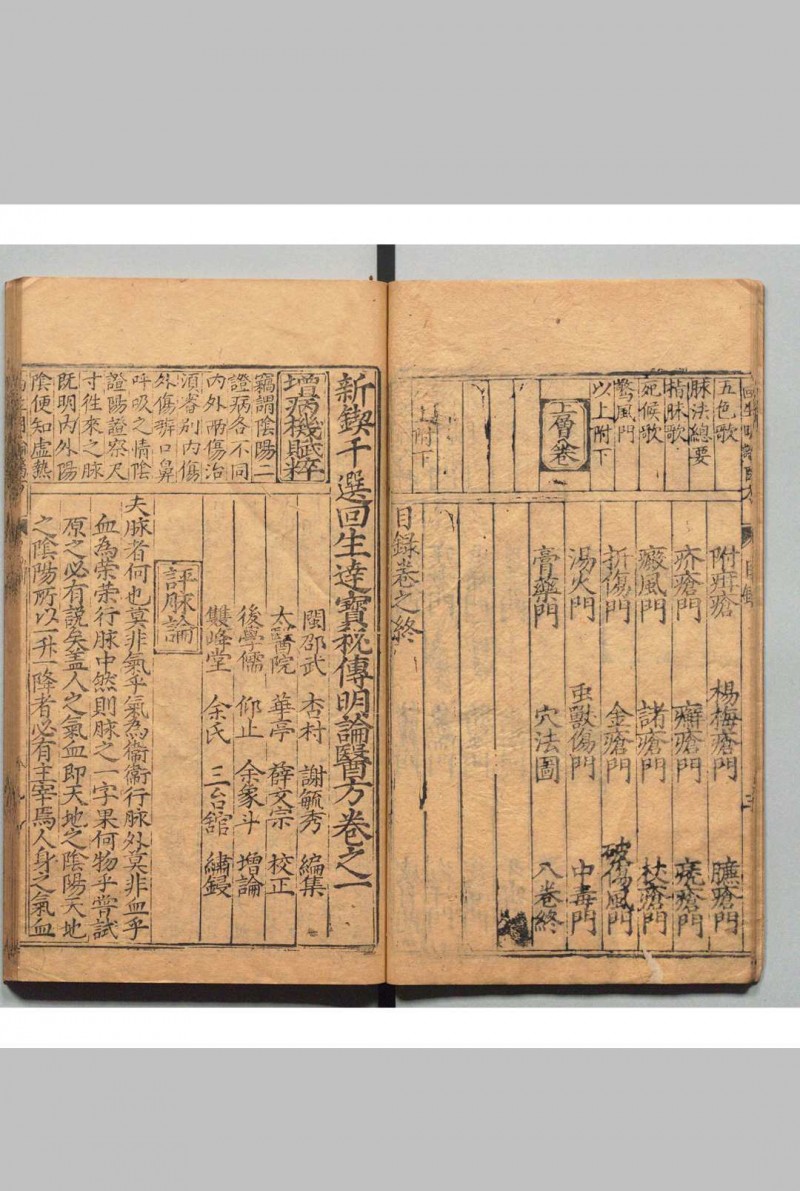 五色歌
脉法總要
指脉歌
死候歌
驚風門
以上附下
上層卷
上附下
附疳瘡 楊梅瘡門 臁瘡門
疥瘡門 癬瘡門 瘡門
癜風門 諸瘡門 杖瘡門
折傷門 金瘡門 破傷風門
湯火門 虫獸傷門 中毒門
膏藥門 穴法圖 八卷終
目錄卷之終
新鍥千選回生達寶秘傳明論醫方卷之一
增病機賦粹
竊謂陰陽二
證病各不同
内外兩傷治
須審别内傷
外傷辨口鼻
呼吸之情陰
證陽證察尺
寸徃來之脉
既明内外陽
陰便知虚熱
閩邵武 杏村 謝毓秀 編集
太醫院 華亭 薛文宗 校正
後學儒 仰止 余象斗 增論
雙峰堂 余氏 三台舘 繡鋟
評脉論
夫脉者何也莫非氣乎氣為衛衛行脉外莫非血乎
血為荣荣行脉中然則脉之一字果何物乎嘗試
原之必有説矣盖人之氣血即天地之陰陽天地
之陰陽所以一升一降者必有主宰焉人身之氣血